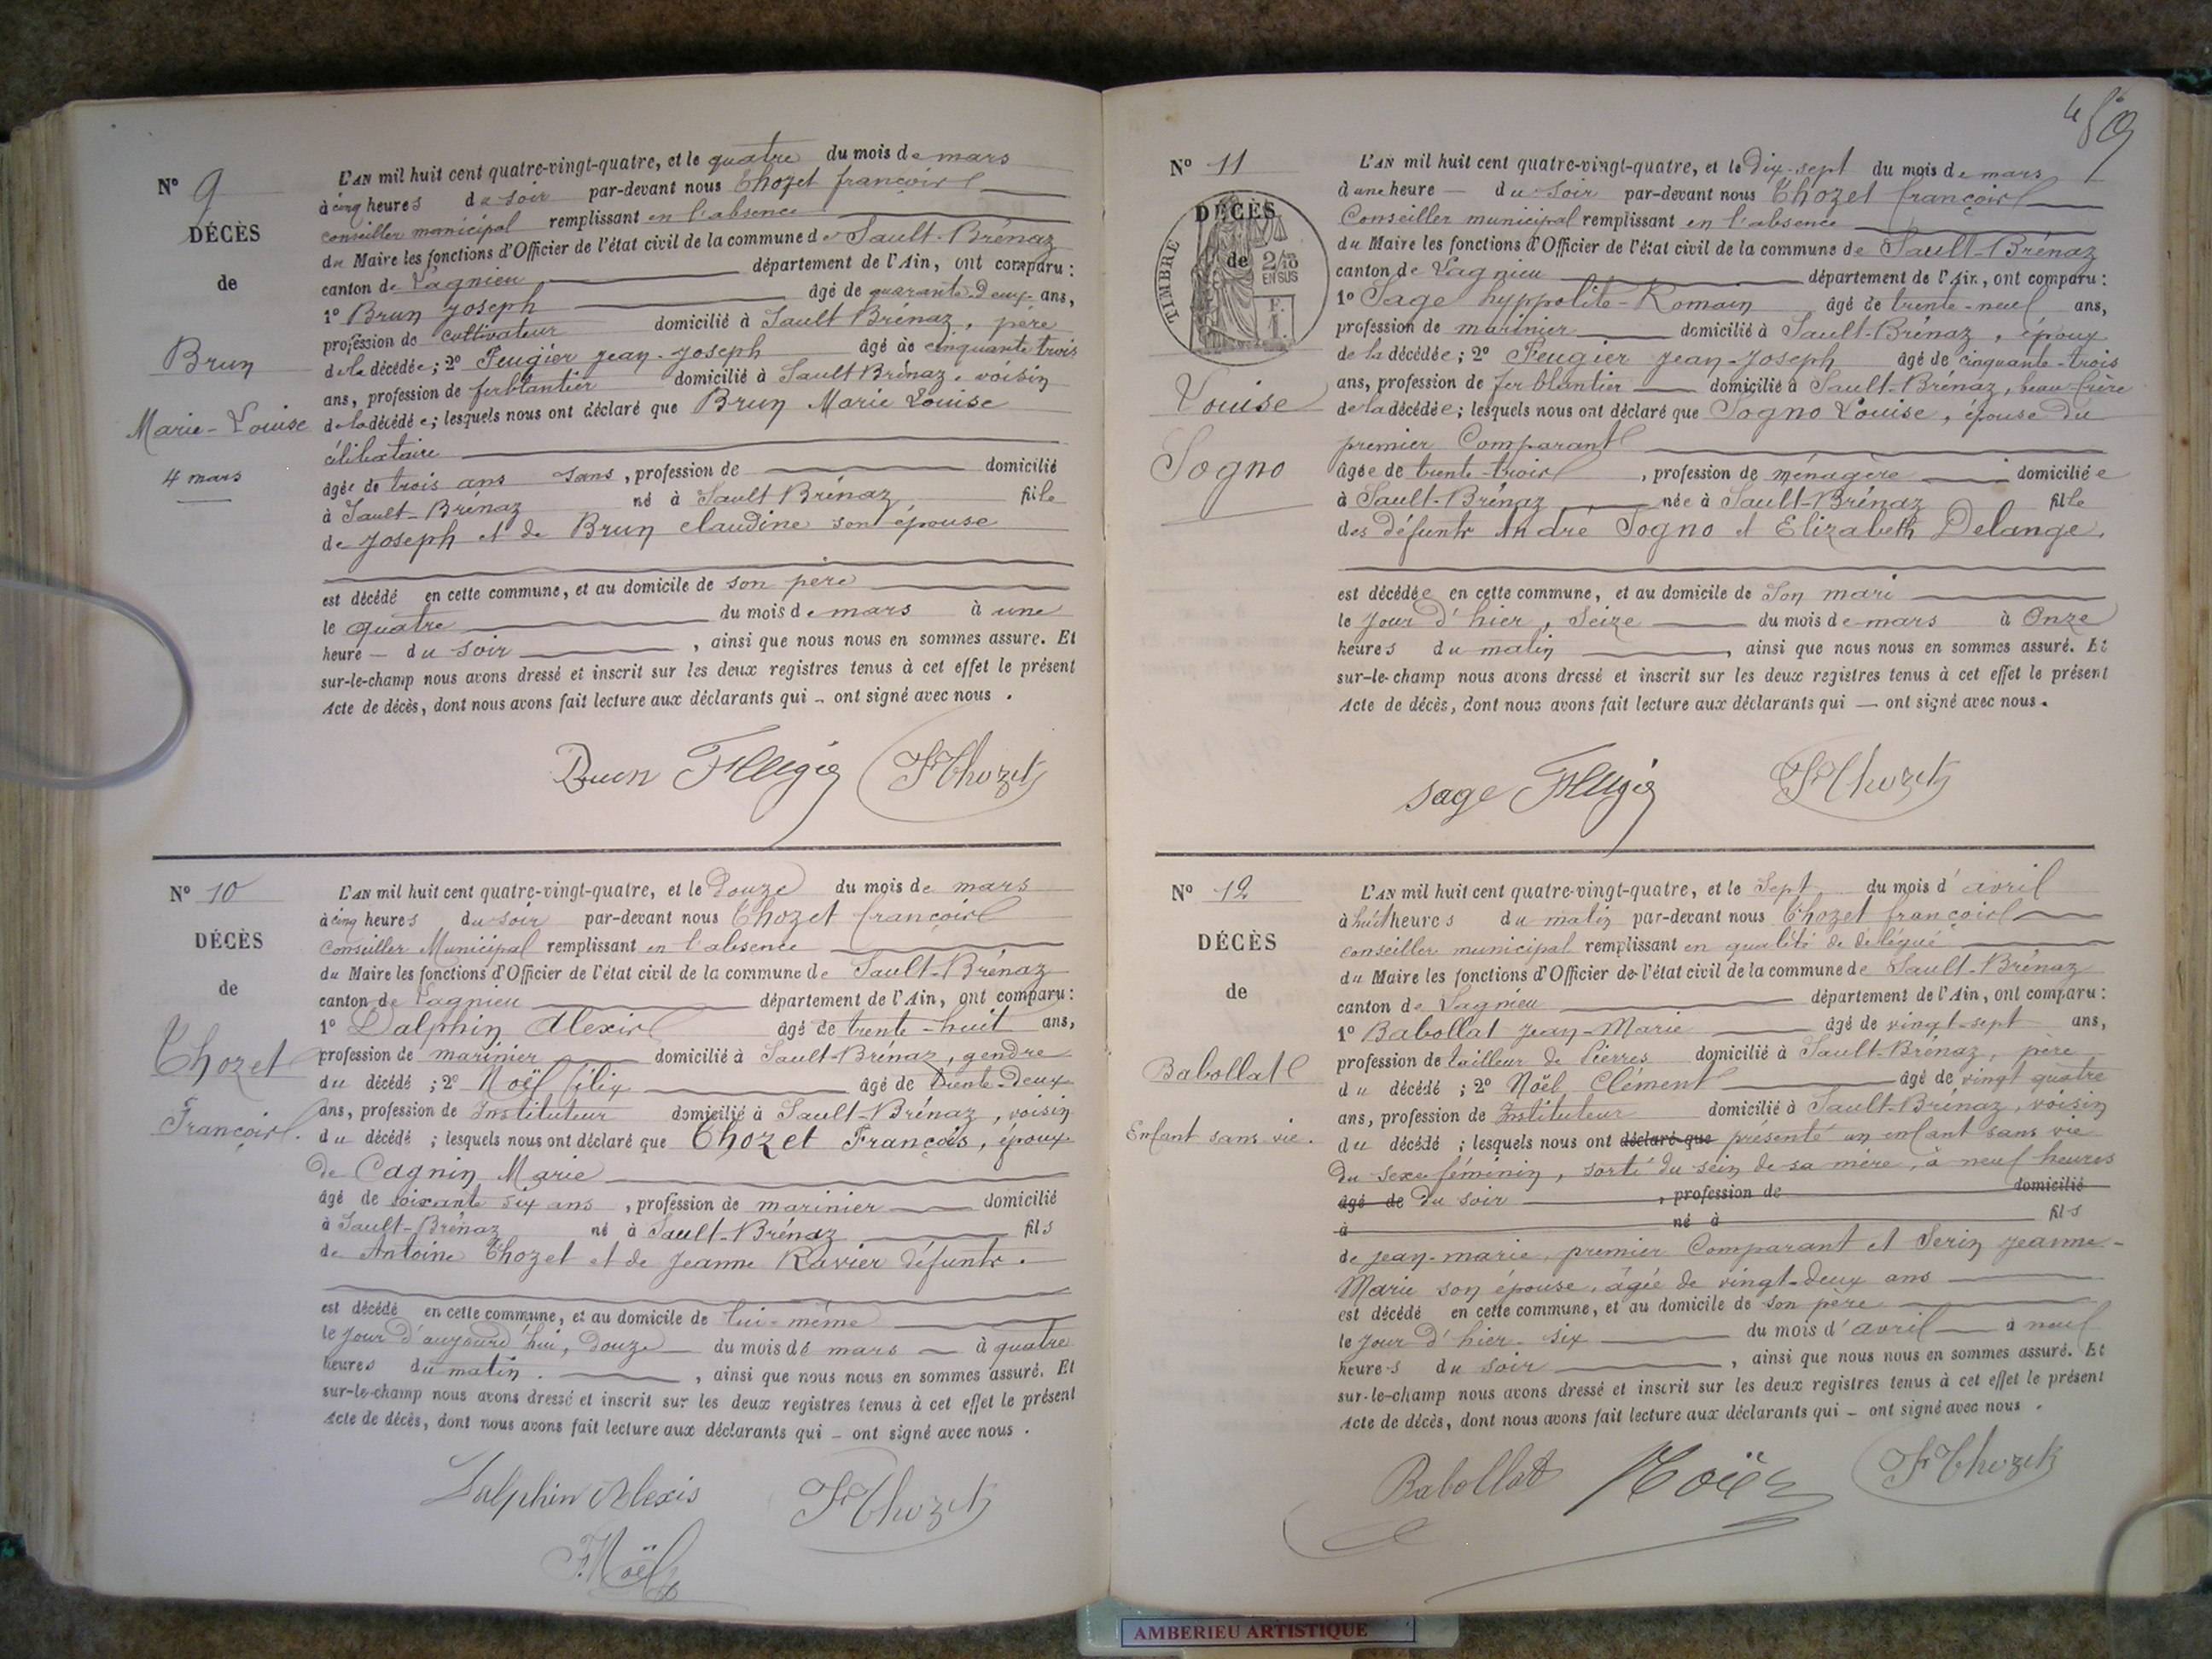 N° 9
DÉCÈS
de
Brun
Marie-Louise
4 mars
L'AN mil huit cent quatre-vingt-quatre, et le quatre du mois de mars
à cinq heures du soir par-devant nous Thozet françois
conseiller municipal remplissant en l'absence
du Maire les fonctions d'Officier de l'état civil de la commune de Sault-Brénaz
canton de Lagnieu département de l'Ain, ont comparu :
1° Brun Joseph âgé de quarante-deux ans,
profession de cultivateur domicilié à Sault Brénaz, père
de la décédée ; 2° Feugier Jean-Joseph âgé de cinquante trois
ans, profession de ferblantier domicilié à Sault Brénaz, voisin
de la décédée ; lesquels nous ont déclaré que Brun Marie Louise
célibataire
âgée de trois ans sans , profession de domicilié
à Sault-Brénaz né à Sault Brénaz fille
de Joseph et de Brun claudine son épouse
est décédé en cette commune, et au domicile de son père
le quatre du mois de mars à une
heure du soir , ainsi que nous nous en sommes assuré. Et
sur-le-champ nous avons dressé et inscrit sur les deux registres tenus à cet effet le présent
Acte de décès, dont nous avons fait lecture aux déclarants qui ont signé avec nous .
Brun Feugier F Thozet
N° 10
DÉCÈS
de
Thozet
François.
L'AN mil huit cent quatre-vingt-quatre, et le Douze du mois de mars
à cinq heures du soir par-devant nous Thozet françois
conseiller Municipal remplissant en l'absence
du Maire les fonctions d'Officier de l'état civil de la commune de Sault-Brénaz
canton de Lagnieu département de l'Ain, ont comparu :
1° Dalphin Alexis âgé de trente-huit ans,
profession de marinier domicilié à Sault-Brénaz, gendre
du décédé ; 2° Noël félix âgé de trente-Deux
ans, profession de Instituteur domicilié à Sault-Brénaz, voisin
du décédé ; lesquels nous ont déclaré que Thozet François, époux
de Cagnin Marie
âgé de soixante six ans , profession de marinier domicilié
à Sault-Brénaz né à Sault-Brénaz fils
de Antoine Thozet et de Jeanne Ravier défunts.
est décédé en cette commune, et au domicile de lui-même
le jour d'aujourd'hui, Douze du mois de mars à quatre
heures du matin. , ainsi que nous nous en sommes assuré. Et
sur-le-champ nous avons dressé et inscrit sur les deux registres tenus à cet effet le présent
Acte de décès, dont nous avons fait lecture aux déclarants qui ont signé avec nous .
Dalphin Alexis F Thozet
F. Noël
N° 11
DÉCÈS
de
TIMBRE
2/10
EN SUS
F.
1.
Louise
Sogno
L'AN mil huit cent quatre-vingt-quatre, et le Dix-sept du mois de mars
à une heure du soir par-devant nous Thozet françois
Conseiller municipal remplissant en l'absence
du Maire les fonctions d'Officier de l'état civil de la commune de Sault-Brénaz
canton de Lagnieu département de l'Ain, ont comparu :
1° Sage hyppolite-Romain âgé de trente-neuf ans,
profession de marinier domicilié à Sault-Brénaz, époux
de la décédée ; 2° Feugier Jean-Joseph âgé de cinquante-trois
ans, profession de ferblantier domicilié à Sault-Brénaz, beau-frère
de la décédée ; lesquels nous ont déclaré que Sogno Louise, épouse du
premier Comparant
âgée de trente-trois , profession de ménagère domiciliée
à Sault-Brénaz née à Sault-Brénaz fille
des défunts André Sogno et Elizabeth Delange.
est décédée en cette commune, et au domicile de Son mari
le jour d'hier, Seize du mois de mars à Onze
heures du matin , ainsi que nous nous en sommes assuré. Et
sur-le-champ nous avons dressé et inscrit sur les deux registres tenus à cet effet le présent
Acte de décès, dont nous avons fait lecture aux déclarants qui — ont signé avec nous.
sage Feugier F Thozet
N° 12
DÉCÈS
de
Babollat
Enfant sans vie.
L'AN mil huit cent quatre-vingt-quatre, et le Sept du mois d'avril
à huit heures du matin par-devant nous Thozet françois
conseiller municipal remplissant en qualité de délégué
du Maire les fonctions d'Officier de l'état civil de la commune de Sault-Brénaz
canton de Lagnieu département de l'Ain, ont comparu :
1° Babollat Jean-Marie âgé de vingt-sept ans,
profession de tailleur de Pierres domicilié à Sault-Brénaz, père
du décédé ; 2° Noël Clément âgé de vingt quatre
ans, profession de Instituteur domicilié à Sault-Brénaz, voisin
du décédé ; lesquels nous ont déclaré que présenté un enfant sans vie
du sexe féminin, sorti du sein de sa mère, à neuf heures
âgé de du soir , profession de domicilié
à né à fils
de Jean-marie, premier Comparant et Serin Jeanne-
Marie son épouse, âgée de vingt-deux ans
est décédé en cette commune, et au domicile de Son père
le jour d'hier six du mois d'avril à neuf
heures du soir , ainsi que nous nous en sommes assuré. Et
sur-le-champ nous avons dressé et inscrit sur les deux registres tenus à cet effet le présent
Acte de décès, dont nous avons fait lecture aux déclarants qui ont signé avec nous .
Babollat Noël F Thozet
AMBERIEU ARTISTIQUE